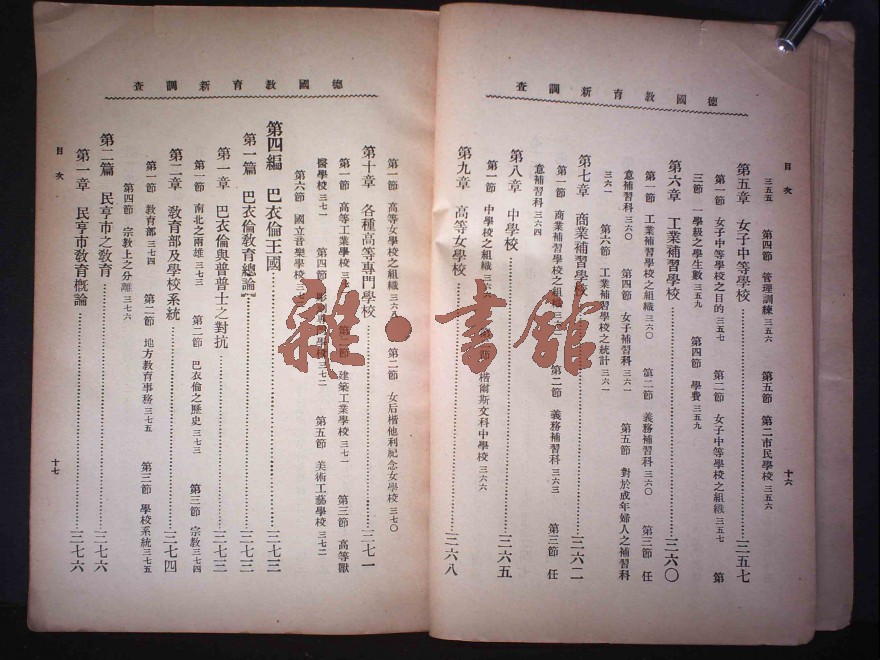 德國教育新調查
目次
十六
三五五 第四節 管理訓練 三五六 第五節 第二市民學校 三五六
第五章 女子中等學校……三五七
第一節 女子中等學校之目的 三五七 第二節 女子中等學校之組織 三五七 第
三節 一學級之學生數 三五九 第四節 學費 三五九
第六章 工業補習學校……三六〇
第一節 工業補習學校之組織 三六〇 第二節 義務補習科 三六〇 第三節 任
意補習科 三六〇 第四節 女子補習科 三六一 第五節 對於成年婦人之補習科
三六一 第六節 工業補習學校之統計 三六一
第七章 商業補習學校……三六二
第一節 商業補習學校之組織 第二節 義務補習科 三六三 第三節 任
意補習科 三六四
第八章 中學校……三六五
第一節 中學校之組織 楷爾斯文科中學校 三六六
第九章 高等女學校……三六八
德國教育新調查
第一節 高等女學校之組織 三六八 第二節 女后楷他利紀念女學校 三七〇
第十章 各種高等專門學校……三七一
第一節 高等工業學校 第二節 建築工業學校 三七一 第三節 高等獸
醫學校 三七一 第四節 專門學校 三七二 第五節 美術工藝學校 三七二
第六節 國立音樂學校
第四編 巴衣倫王國……三七三
第一篇 巴衣倫教育總論……三七三
第一章 巴衣倫與普普士之對抗……三七三
第一節 南北之兩雄 三七三 第二節 巴衣倫之歷史 三七三 第三節 宗教 三七四
第二章 教育部及學校系統……三七四
第一節 教育部 三七四 第二節 地方教育事務 三七五 第三節 學校系統 三七五
第四節 宗教上之分離 三七六
第二篇 民亨市之教育……三七六
第一章 民亨市教育概論……三七六
目次
十七
雜·書館